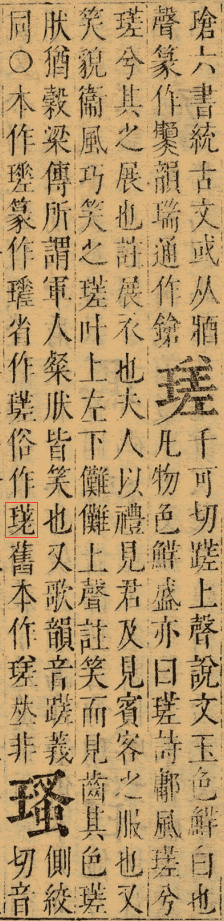 瑲六書統古文或从酒
聲篆作韻瑞通作鎗
瑳
千可切蹉上聲說文玉色鮮白也
凡物色鮮盛亦曰瑳詩鄘風瑳兮
瑳兮其之展也註展衣也夫人以禮見君及見賓客之服也又
笑貌衞風巧笑之瑳叶上左下儺儺上聲註笑而見齒其色瑳
肰猶穀梁傳所謂軍人粲肰皆笑也又歌韻音蹉義
同○本作篆作省作瑳俗作舊本作非
瑵
側絞
切音